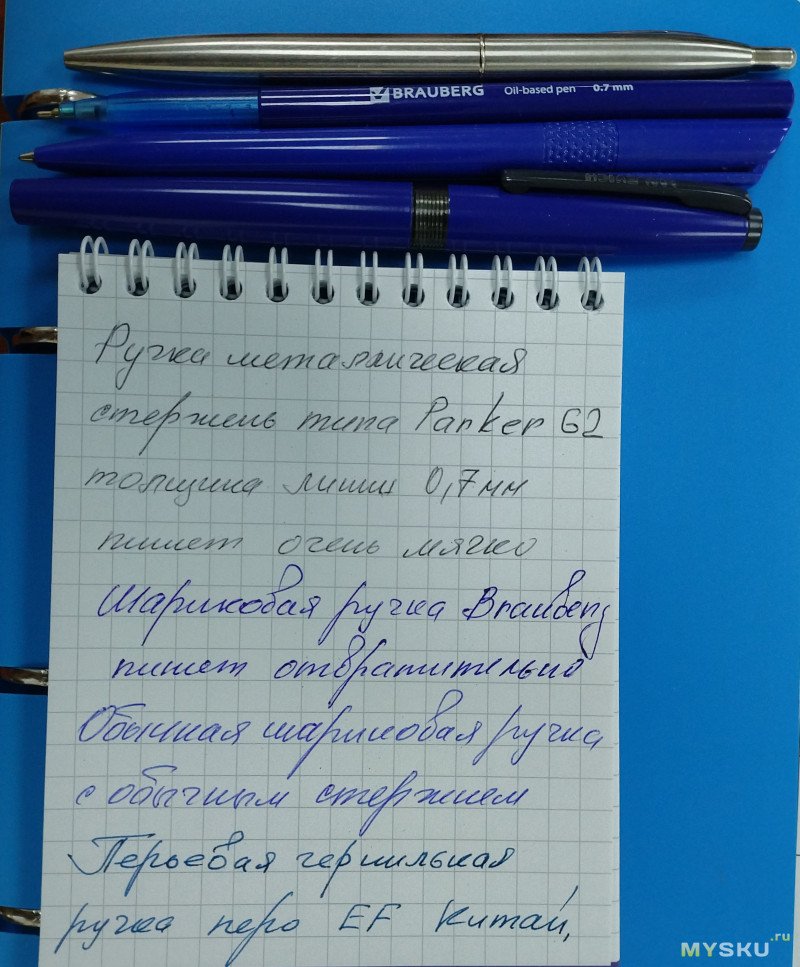 BRAUBERG Oil-based pen 0.7 mm
Ручка металлическая
стержень типа Parker G2
толщина линии 0,7мм
пишет очень мягко
Шариковая ручка Brauberg
пишет отвратительно
Обычная шариковая ручка
с обычным стержнем
Перьевая чернильная
ручка перо EF Китай,
MYSKU.ru